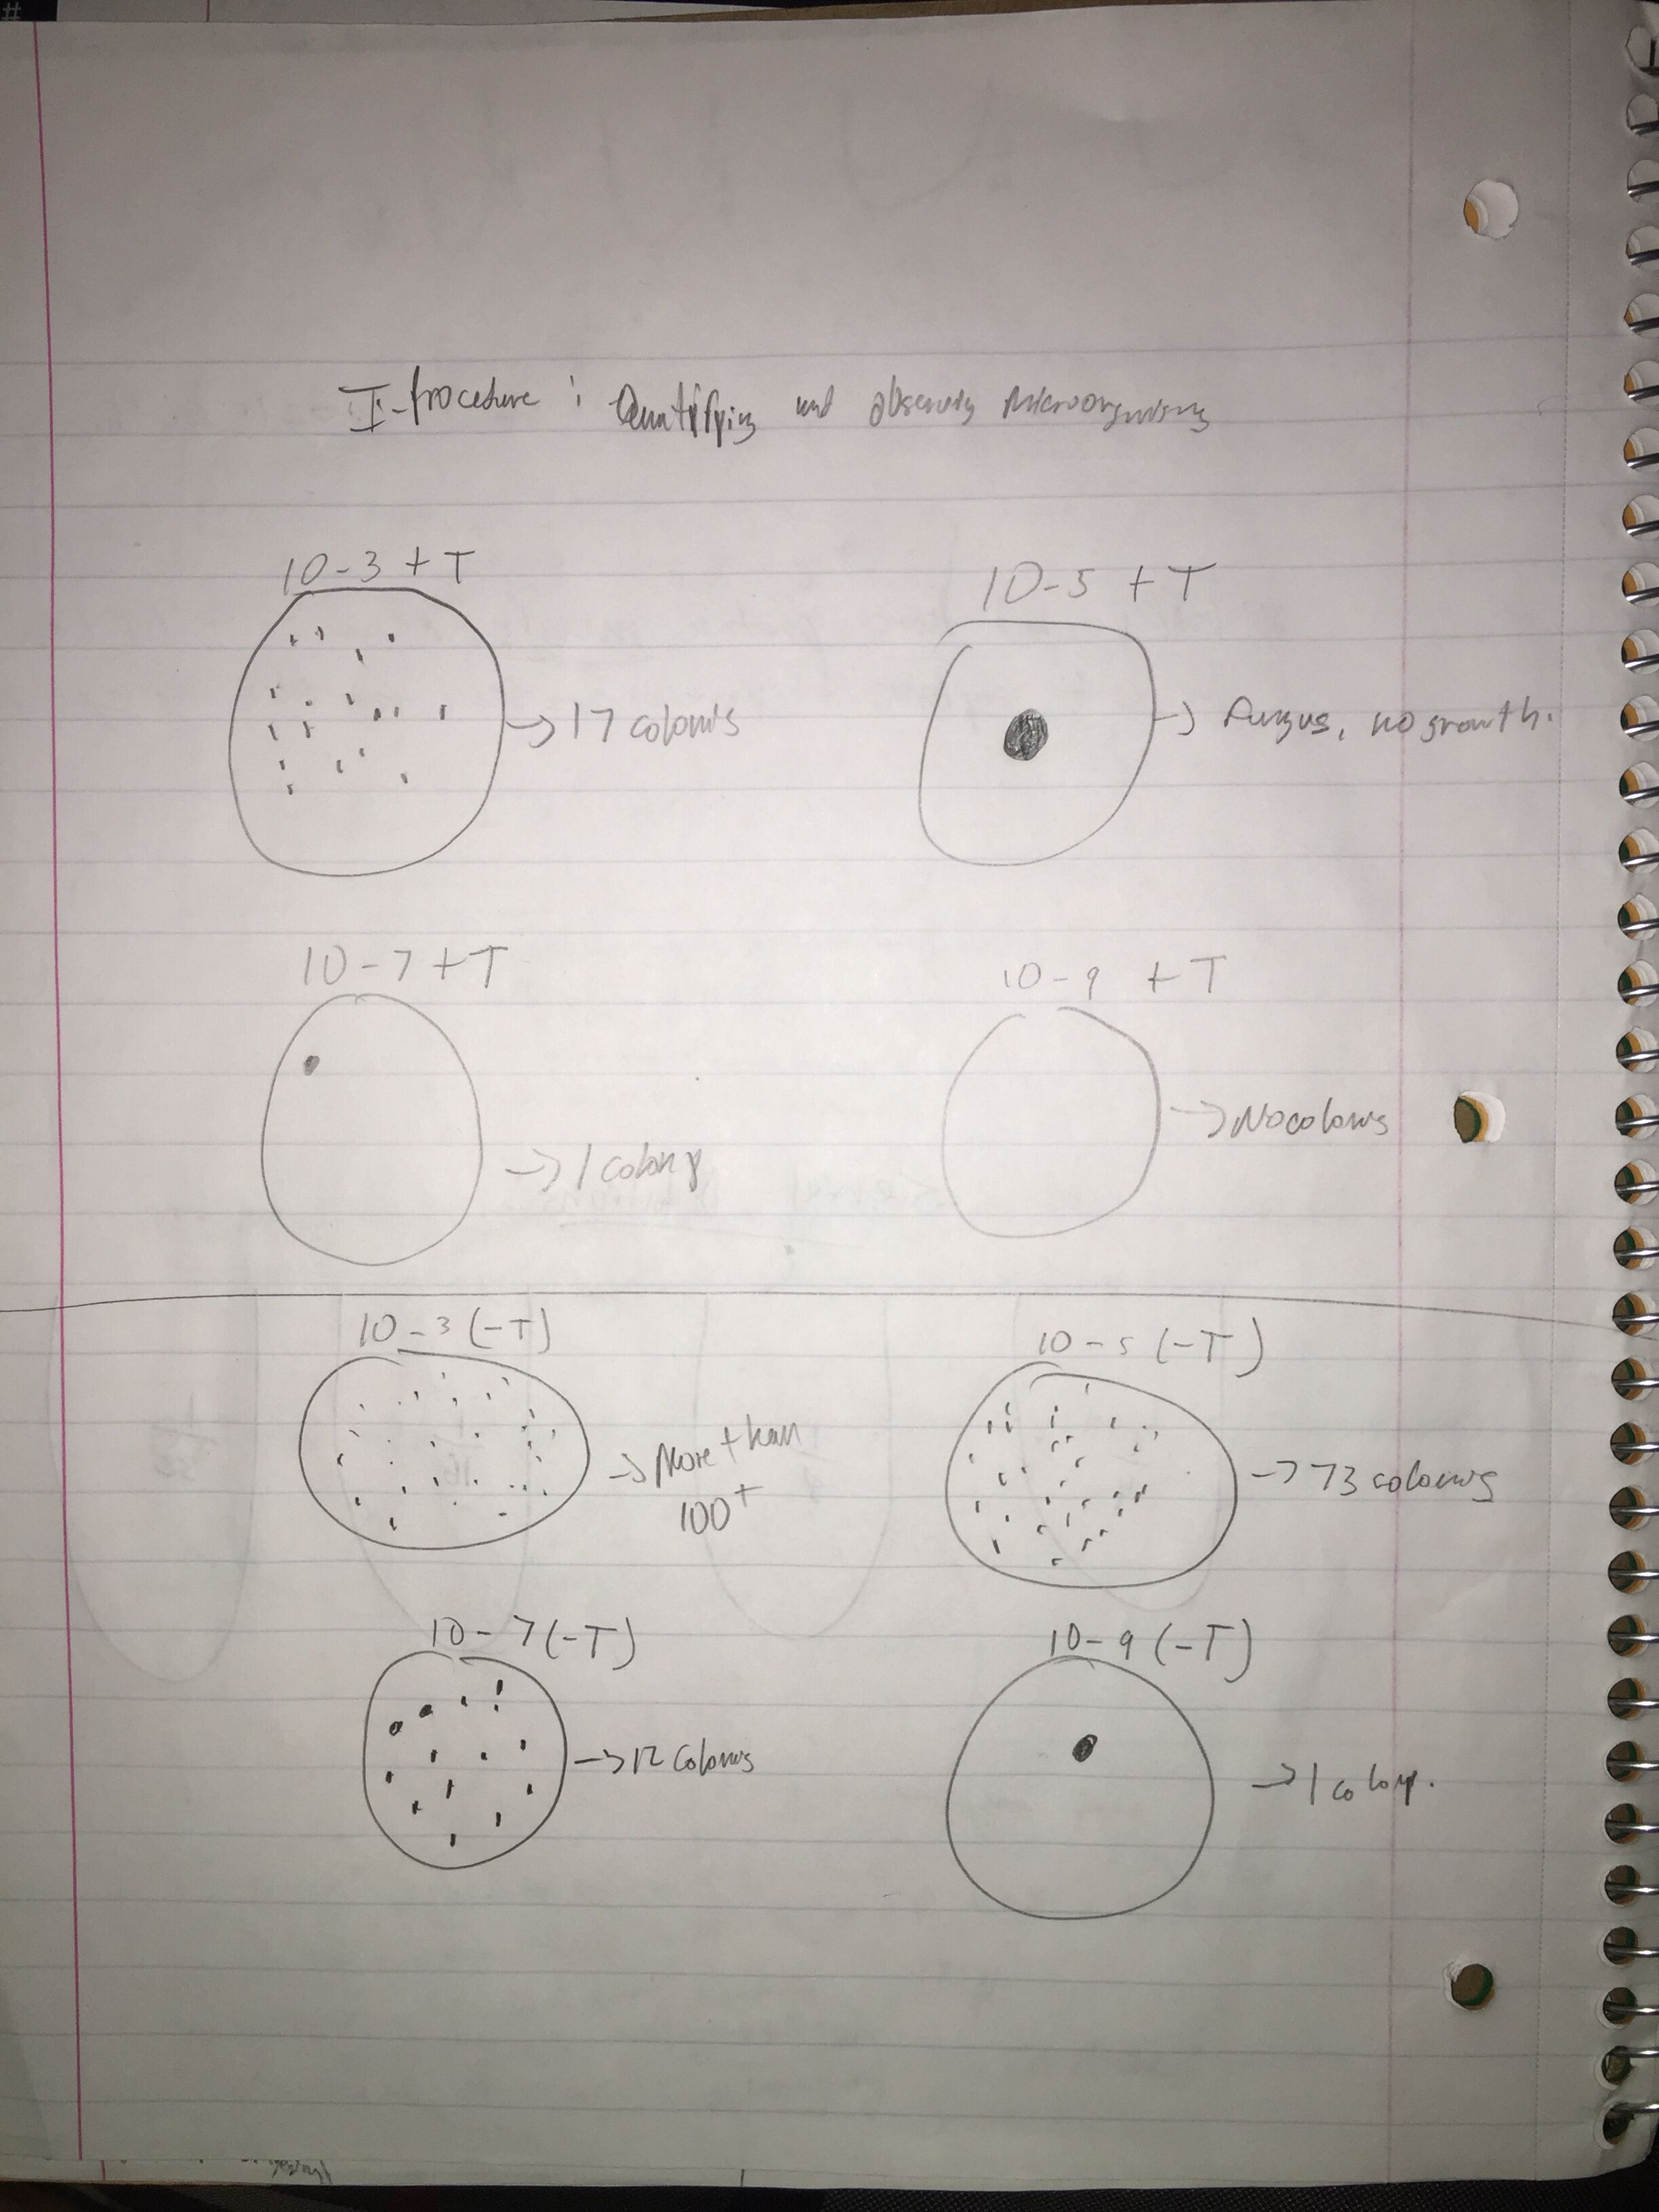 I-Procedure : Quantifying and observing Microorganisms
10-3 + T
10-5 + T
→ 17 colonis
→ Fungus, no growth.
10-7 + T
10-9 + T
→ No colonis
→ 1 colony
10-3 (-T)
10-5 (-T)
→ More than
100+
→ 73 colonis
10-7 (-T)
10-9 (-T)
→ 12 colonis
→ 1 colony.